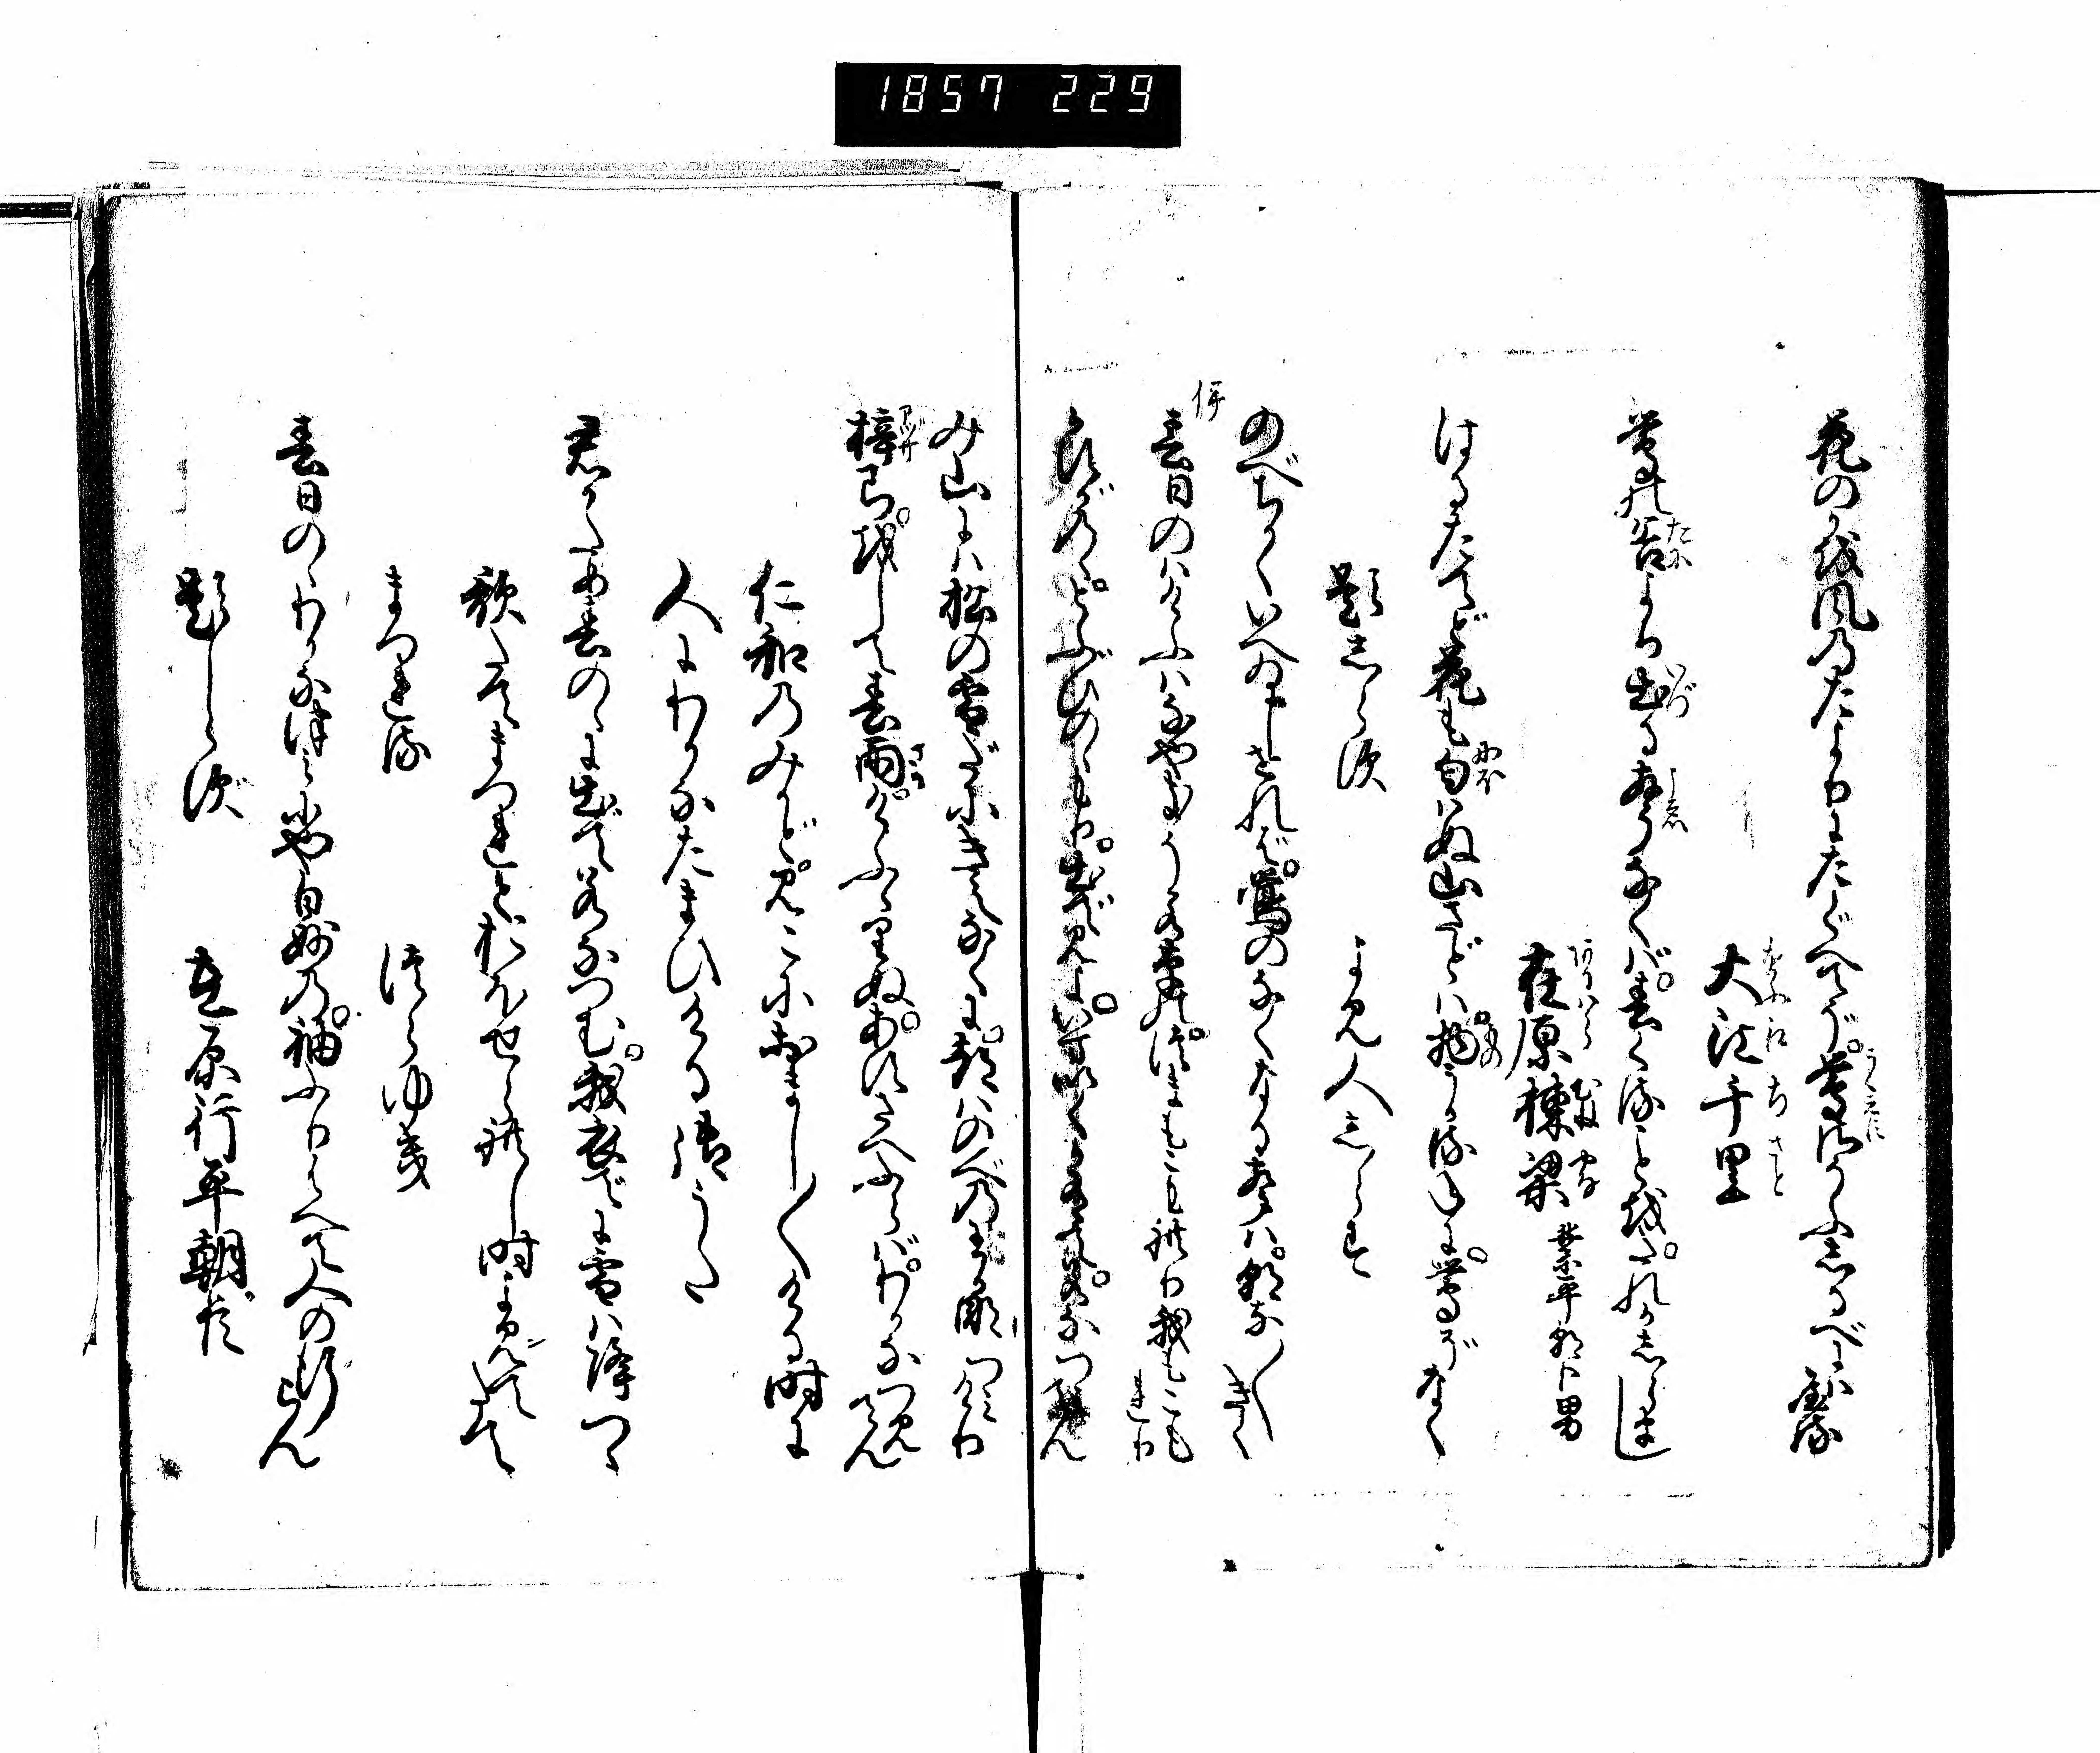 1857 229
花のかを風のたよりにたぐへてぞ鶯さそふしるべにはやる
大江千里
おほえ ちさと
鶯の谷より出るこゑなくば春くることをたれかしらまし
在原棟梁 業平朝臣男
ありはら むね やな
はるたてど花も匂はぬ山ざとは物うかるねに鶯ぞなく
題しらず よみ人しらす
のべちかくいへゐしせれば鶯のなくなる声は朝な〱きく
伊
春日のはけふはなやきそ若草の。つまもこもれり我もこもれり
春日のゝとぶひのゝもり。出て見よ。いまいくか有て。若なつみてん
み山には松の雪だにきえなくに。都はのべの若菜つみけり
梓弓。をして春雨。けふふりぬ。あすさへふらば。わかなつみてん
仁和のみかど。みこにおはまし〱ける時に
人にわかなたまひける御うた
君がため春のゝに出て若なつむ。我衣でに雪は降つゝ
歌たてまつれとおほせられし時よみてたて
まつれる つらゆき
春日のゝわかなつみにや白妙の。袖ふりはへて人の行らん
題しらず 在原行平朝臣